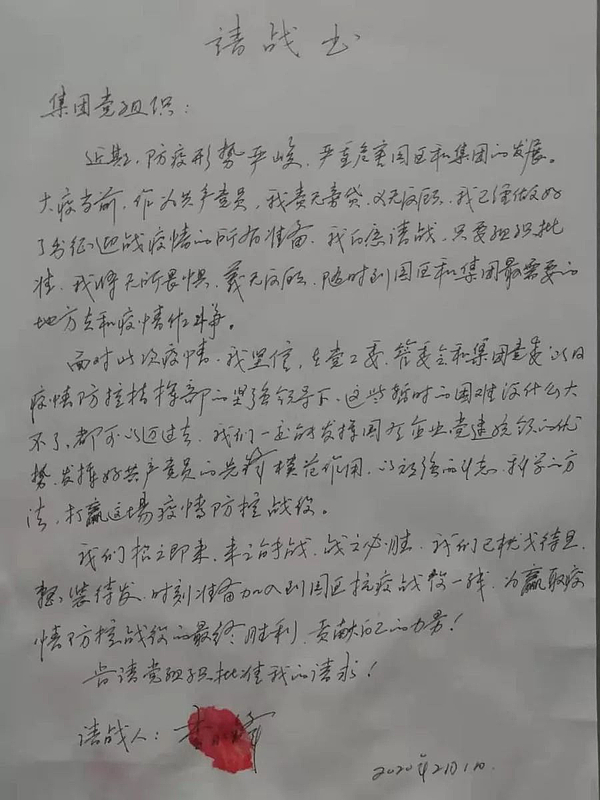 请战书
集团党组织：
近期，防疫形势严峻，严重危害园区和集团的发展。
大疫当前，作为共产党员，我责无旁贷、义无反顾，我已经做好
了出征迎战疫情的所有准备，我的请战，只要组织批
准，我将无所畏惧、义无反顾，随时到园区和集团最需要的
地方去和疫情作斗争。
面对此次疫情，我坚信，在党工委、管委会和集团党委以及
疫情防控指挥部的坚强领导下，这些暂时的困难没什么大
不了，都可以迈过去，我们一定能发挥国有企业党建统领的优
势，发挥好共产党员的先锋模范作用，以顽强的斗志，科学的方
法，打赢这场疫情防控战役。
我们招之即来，来之能战，战之必胜，我们已枕戈待旦，
整装待发，时刻准备加入到园区抗疫战役一线，为赢取疫
情防控战役的最终胜利，贡献自己的力量！
请党组织批准我的请求！
请战人：李
2020年2月1日